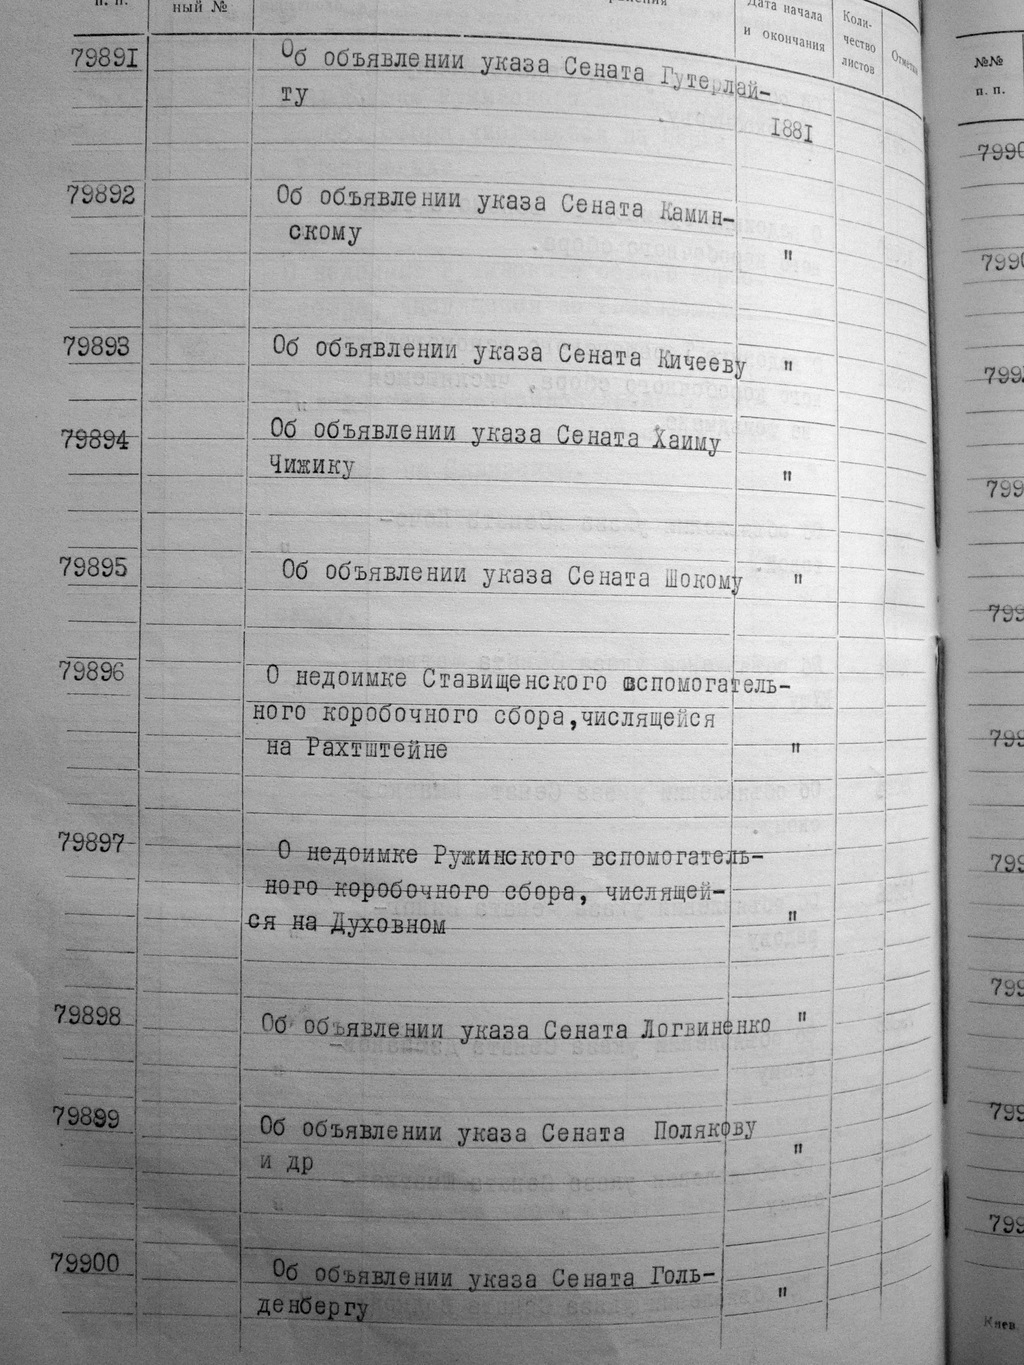 п. п.
ный №
Дата начала
и окончания
Коли-
чество
листов
79891 Об объявлении указа Сената Гутерлай-
ту
1881
79892 Об объявлении указа Сената Камин-
скому "
79893 Об объявлении указа Сената Кичееву "
79894 Об объявлении указа Сената Хаиму
Чижику "
79895 Об объявлении указа Сената Шокому "
79896 О недоимке Ставищенского вспомогатель-
ного коробочного сбора,числящейся
на Рахтштейне "
79897 О недоимке Ружинского вспомогатель-
ного коробочного сбора, числящей-
ся на Духовном "
79898 Об объявлении указа Сената Логвиненко "
79899 Об объявлении указа Сената Полякову
и др "
79900 Об объявлении указа Сената Голь-
денбергу "
№№
п. п.
7990
7990
799
799
799
799
799
799
799
799
Киев.